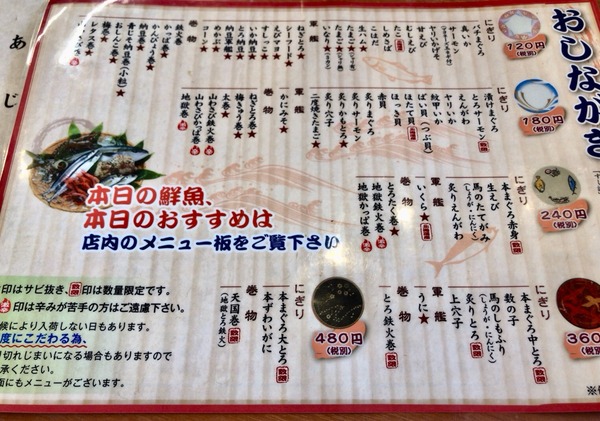 おしながき
120円
(税別)
にぎり
バチまぐろ
サーモン
真いか
やりいかげそ
甘えび
むしえび
たこ
こはだ
生ハム★
たまご★
いなり★
軍艦
ねぎとろ★
シーフード★
えびマヨ★
いか納豆★
とびっこ★
納豆軍艦★
めかぶ★
コーン★
巻物
鉄火巻★
かっぱ巻★
かんぴょう巻★
納豆巻★
青じそ納豆巻(小粒)★
おしんこ巻★
梅巻★
レタス巻★
180円
(税別)
にぎり
漬けまぐろ
とろサーモン
えんがわ
ヤリいか
紋甲いか
つぶ貝(つぶ貝)
ほたて貝
ほっき貝
赤貝
炙りまぐろ
炙りサーモン
炙りかもとろ★
炙り穴子
二度焼きたまご★
軍艦
かにみそ★
巻物
ねぎとろ巻★
梅きゅう巻★
太巻★
山わさび鉄火巻
山わさびかっぱ巻
地獄巻
240円
(税別)
にぎり
本まぐろ赤身
生えび
馬のたてがみ
(しょうが・にんにく)
炙りえんがわ
軍艦
いくら
巻物
とろたく巻★
地獄鉄火巻
地獄かっぱ巻
360
(税別)
にぎり
本まぐろ中とろ
数の子
馬のしもふり
(しょうが・にんにく)
炙りとろ
上穴子
軍艦
うに★
巻物
とろ鉄火巻
480円
(税別)
にぎり
本まぐろ大とろ
本ずわいがに
巻物
天国巻
(地獄とろ鉄火)
あじ
本日の鮮魚、
本日のおすすめは
店内のメニュー板をご覧下さい
印はサビ抜き、数限印は数量限定です。
印は辛みが苦手の方はご遠慮下さい。
候により入荷しない日もあります。
度にこだわる為、
切れじまいになる場合もありますので
承ください。
面にもメニューがございます。